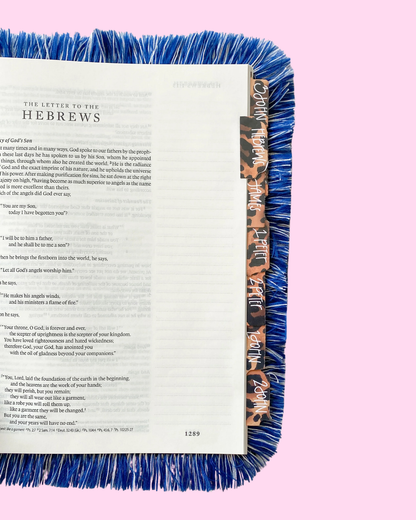 THE LETTER TO THE
HEBREWS
cy of God's Son
many times and in many ways, God spoke to our fathers by the proph-
these last days he has spoken to us by his Son, whom he appointed
things, through whom also he created the world. He is the radiance
God and the exact imprint of his nature, and he upholds the universe
f his power. After making purification for sins, he sat down at the right
ajesty on high, having become as much superior to angels as the name
ed is more excellent than theirs.
ich of the angels did God ever say,
"You are my Son,
today I have begotten you"?
"I will be to him a father,
and he shall be to me a son"?
hen he brings the firstborn into the world, he says,
"Let all God's angels worship him."
he says,
"He makes his angels winds,
and his ministers a flame of fire."
on he says,
"Your throne, O God, is forever and ever,
the scepter of uprightness is the scepter of your kingdom.
You have loved righteousness and hated wickedness;
therefore God, your God, has anointed you
with the oil of gladness beyond your companions."
"You, Lord, laid the foundation of the earth in the beginning,
and the heavens are the work of your hands;
they will perish, but you remain;
they will all wear out like a garment,
like a robe you will roll them up,
like a garment they will be changed.
But you are the same,
and your years will have no end."
1289
HEBREW
JAMES
1 PETER
2 PETER
1 JOHN
2 JOHN